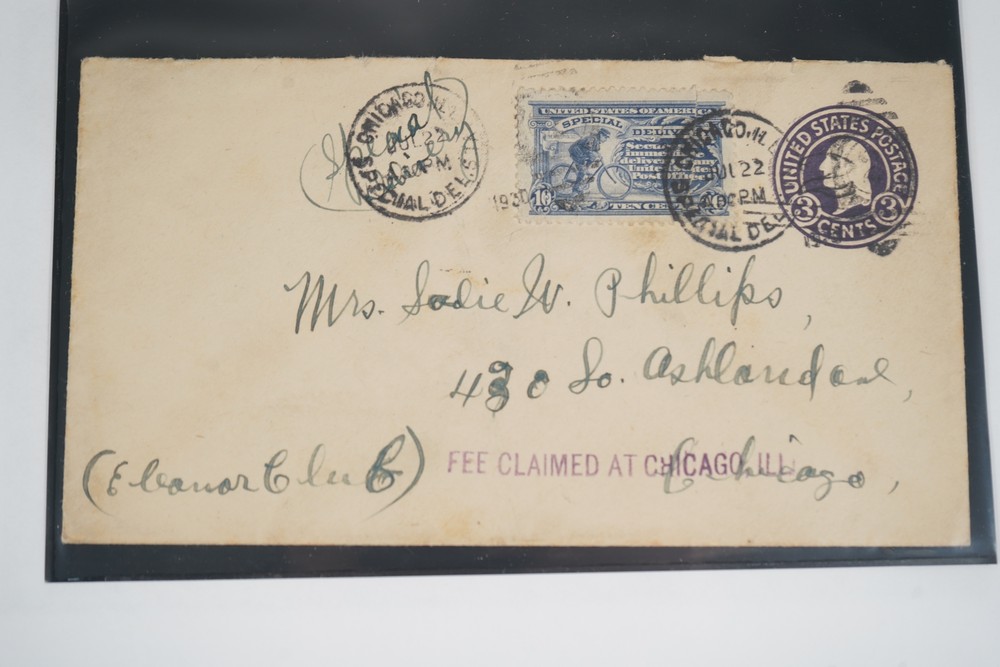 CHICAGO, ILL.
JUL 22
PM
SPECIAL DEL.
1930
UNITED STATES OF AMERICA
SPECIAL DELIVERY
Secures
immediate
delivery at any
United States
Post Office
10
TEN CENTS
CHICAGO, ILL.
JUL 22
PM
SPECIAL DEL.
UNITED STATES POSTAGE
3 3
CENTS
Mrs. Sadie W. Phillips,
430 So. Ashland ave,
(Eleanor Club)
FEE CLAIMED AT CHICAGO, ILL.
Chicago,